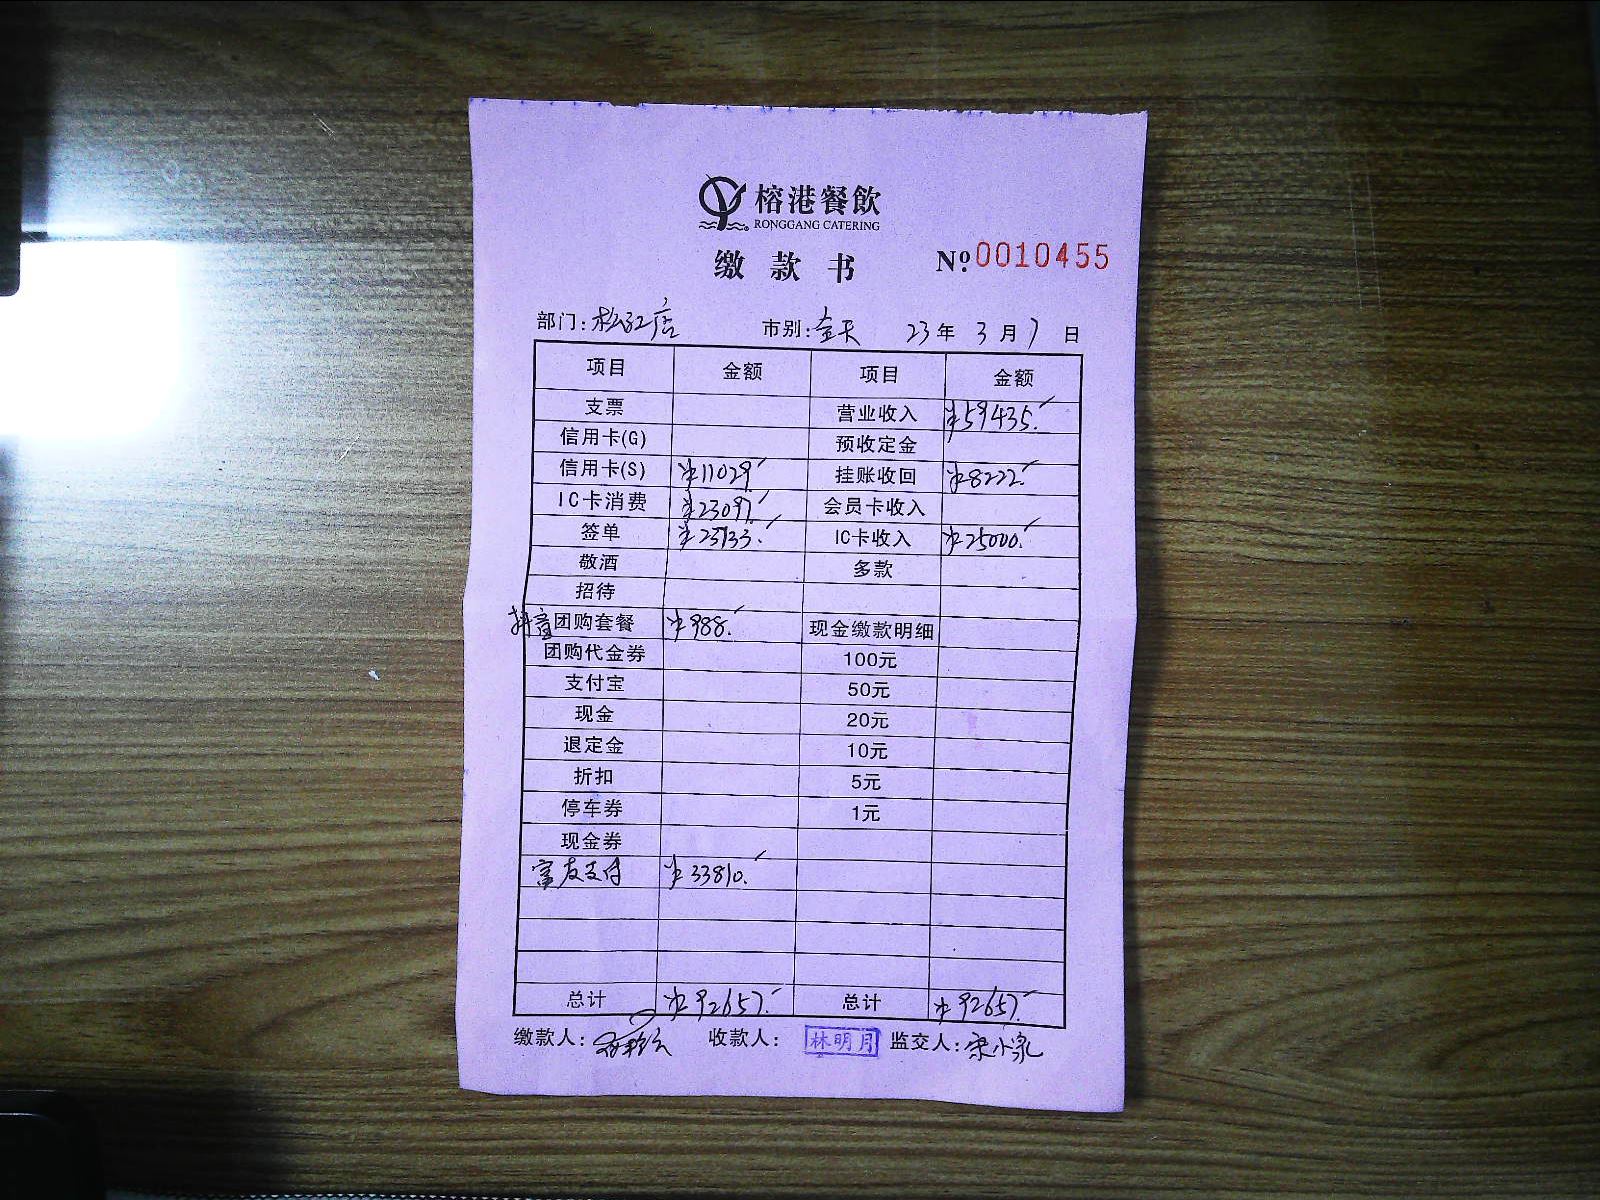 榕港餐飲
RONGGANG CATERING
缴款书 Nº.0010455
部门:松江店 市别:全天 23年3月7日
项目 金额 项目 金额
支票 营业收入 ¥59435.
信用卡(G) 预收定金
信用卡(S) ¥11029. 挂账收回 ¥8222.
IC卡消费 ¥23097. 会员卡收入
签单 ¥23733. IC卡收入 ¥25000.
敬酒 多款
招待
抖音团购套餐 ¥988. 现金缴款明细
团购代金券 100元
支付宝 50元
现金 20元
退定金 10元
折扣 5元
停车券 1元
现金券
富友支付 ¥33810.
总计 ¥92657. 总计 ¥92657.
缴款人: 收款人: 林明月 监交人: